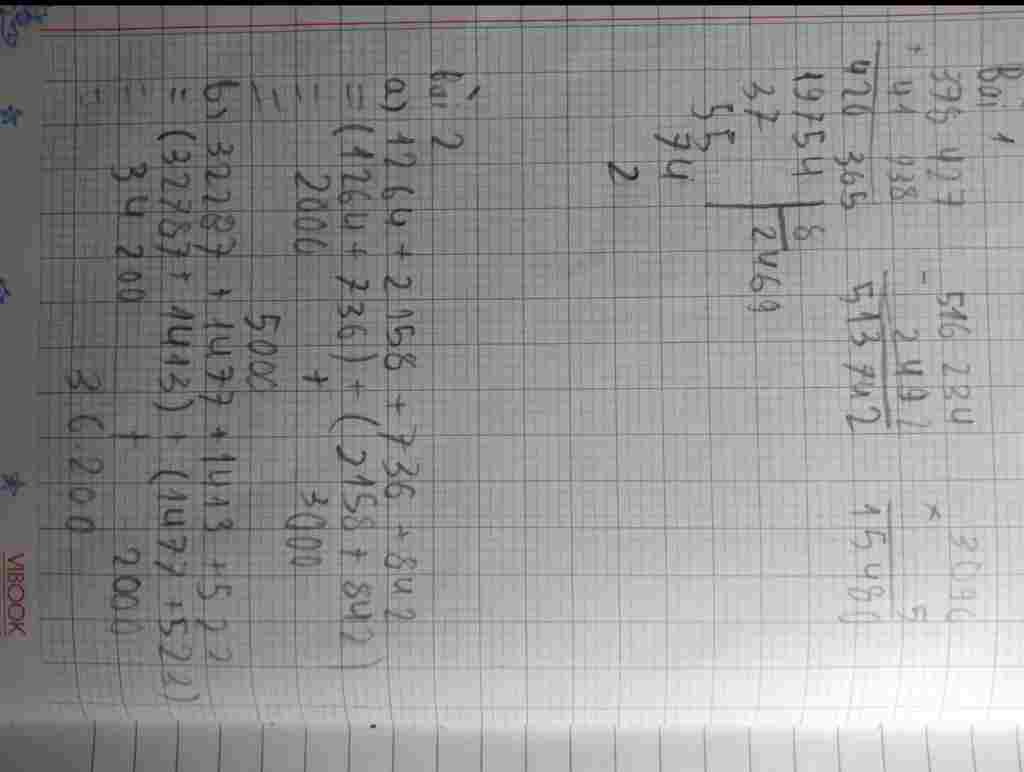 Bài 1
378 427 516 234 3096
+ 41 938 - 2 492 x 5
420 365 513 742 15 480
19754 8
37 2469
55
74
2
Bài 2
a) 1264 + 2158 + 736 + 842
= (1264 + 736) + (2158 + 842)
= 2000 + 3000
= 5000
b) 32287 + 1477 + 1413 + 522
= (32787 + 1413) + (1477 + 522)
= 34 200 + 2000
= 36.200
VIBOOK